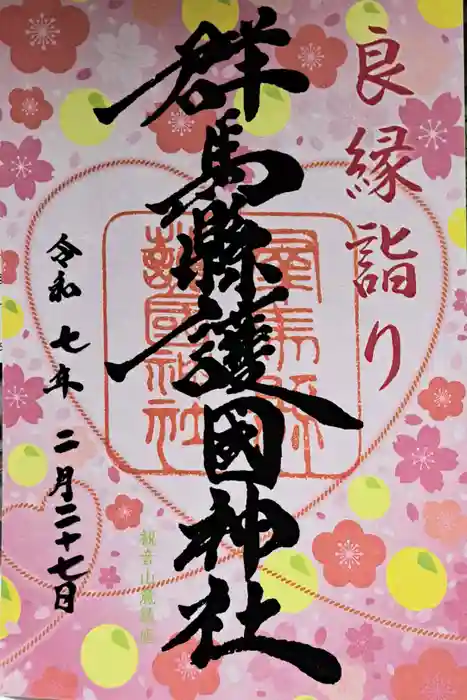 良縁詣り
群馬縣護國神社
群馬縣
護國神社
令和七年二月二十七日